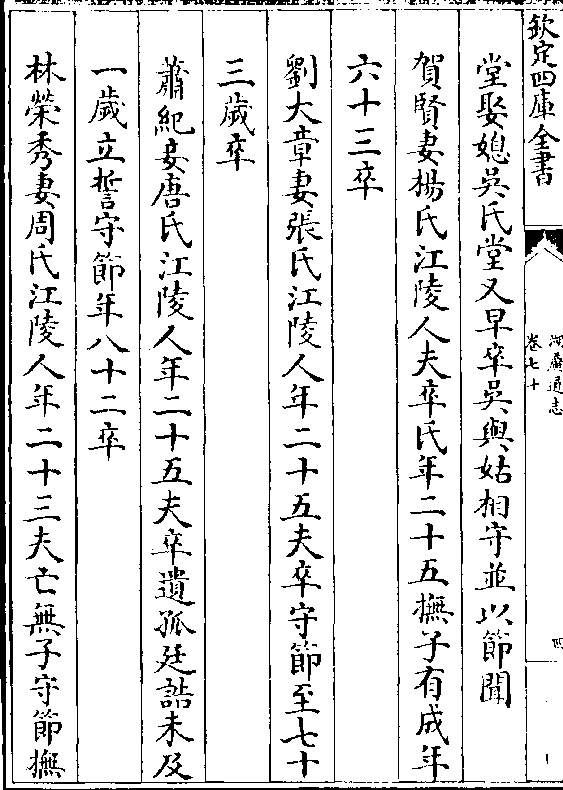 欽定四庫全書
湖廣通志
卷七十
四
堂娶媳吳氏堂又早卒吳與姑相守並以節聞
賀賢妻楊氏江陵人夫卒氏年二十五撫子有成年
六十三卒
劉大章妻張氏江陵人年二十五夫卒守節至七十
三歲卒
蕭紀妾唐氏江陵人年二十五夫卒遺孤廷誥未及
一歲立誓守節年八十二卒
林榮秀妻周氏江陵人年二十三夫亡無子守節撫